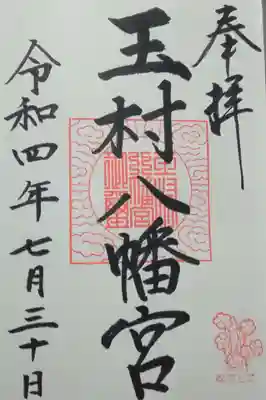 奉拝
玉村八幡宮
令和四年七月三十日